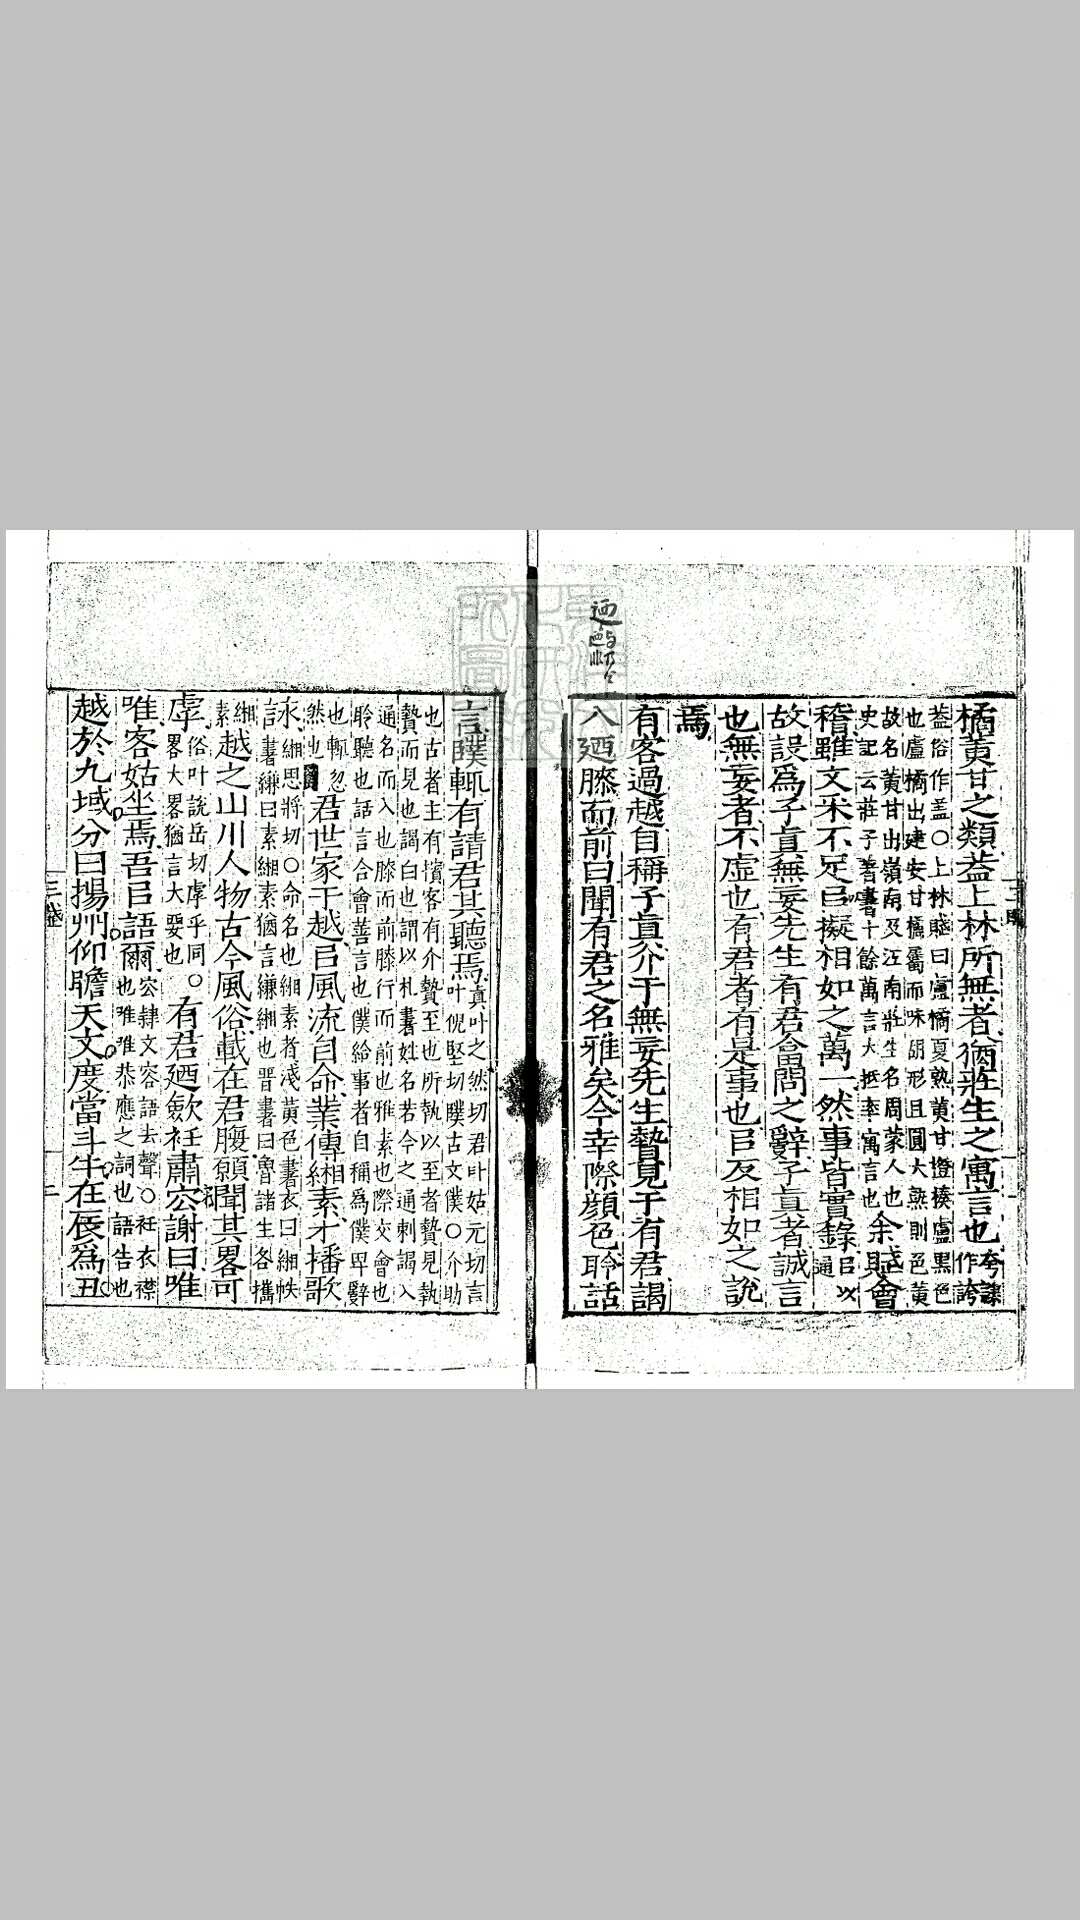 橘黃甘之類葢上林所無者猶莊生之寓言也夸課作誇
葢俗作盖○上林賦曰盧橘夏熟黃甘橙楱盧黑色
也盧橘出建安甘橘屬而味胡形且圓大熟則色黃
故名黃甘出嶺南及江南莊生名周蒙人也
史記云莊子著書十餘萬言大抵率寓言也
余賦會
稽雖文采不足㠯擬相如之萬一然事皆實錄㠯以通
故設爲子眞無妄先生有君畣問之辭子眞者誠言
也無妄者不虛也有君者有是事也㠯反相如之說
焉
有客過越自稱子眞介于無妄先生贄見于有君謁
入廼膝而前曰聞有君之名雅矣今幸際顏色聆話
廼
言䑑輒有請君其聽焉眞叶之然切君叶姑元切言
叶倪堅切䑑古文僕○介助
也古者主有擯客有介贄至也所執以至者贄見執
贄而見也謁白也謂以札書姓名若今之通刺謁入
通名而入也膝而前膝行而前也雅素也際交會也
聆聽也話言合會善言也僕給事者自稱爲僕卑辭
也輒忽
然也
君世家于越㠯風流自命業傳緗素才播歌
永緗思將切○命名也緗素者淺黃色書衣曰緗帙
言書縑曰素緗素猶言縑緗也晋書曰魯諸生各攜
緗素
越之山川人物古今風俗載在君腹願聞其畧可
虖俗叶説岳切虖乎同○
畧大畧猶言大要也
有君廼斂衽肅容謝曰唯
唯客姑坐焉吾㠯語爾容隸文容語去聲○衽衣襟
也唯唯恭應之詞也語告也
越於九域分曰揚州仰瞻天文度當斗牛在辰爲丑